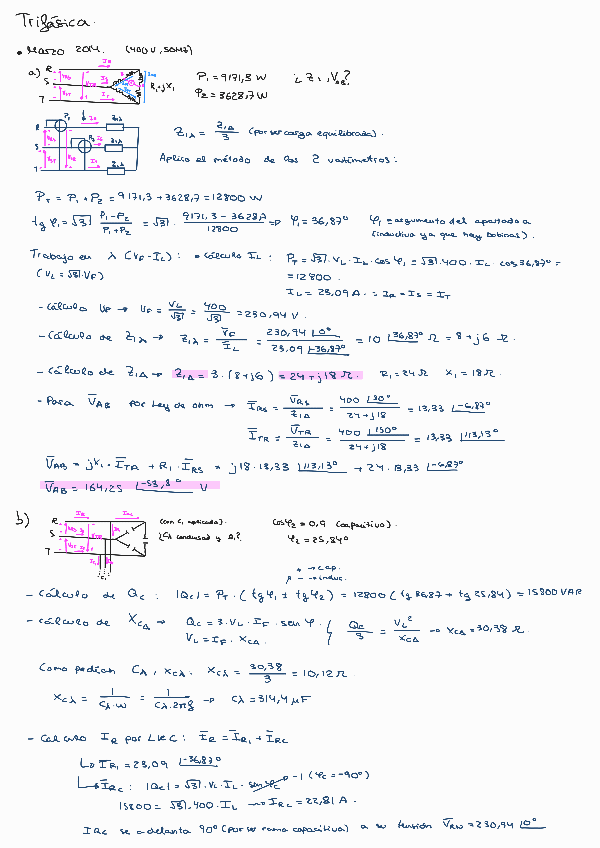 Trifásica.
• Marzo 2014. (400V, 50Hz)
a) P₁ = 9171,3 W ¿Z₁, V_AB?
P₂ = 3628,7 W
R
S
T
R₁+jX₁
Z₁λ = Z₁Δ/3 (por ser carga equilibrada).
Aplico el método de los 2 vatímetros:
P_T = P₁ + P₂ = 9171,3 + 3628,7 = 12800 W
tg φ₁ = √3 · (P₁-P₂)/(P₁+P₂) = √3 · (9171,3 - 3628,7)/12800 => φ₁ = 36,87° φ₁ = argumento del apartado a
(inductiva ya que hay bobinas).
Trabajo en λ (V_F - I_L): • Cálculo I_L: P_T = √3 · V_L · I_L · cos φ₁ = √3 · 400 · I_L · cos 36,87° =
(V_L = √3 · V_F) = 12800.
I_L = 23,09 A ∴ I_R = I_S = I_T
- Cálculo V_F → V_F = V_L/√3 = 400/√3 = 230,94 V.
- Cálculo de Z₁λ → Z₁λ = V̄_F/Ī_L = 230,94 |0°/23,09 |-36,87° = 10 |36,87° Ω = 8+j6 Ω.
- Cálculo de Z₁Δ → Z₁Δ = 3 · (8+j6) = 24+j18 Ω. R₁ = 24 Ω X₁ = 18 Ω.
- Para V̄_AB por Ley de ohm → Ī_RS = V̄_RS/Z₁Δ = 400 |30°/24+j18 = 13,33 |-6,87°
Ī_TR = V̄_TR/Z₁Δ = 400 |150°/24+j18 = 13,33 |113,13°
V̄_AB = jX₁ · Ī_TR + R₁ · Ī_RS = j18 · 13,33 |113,13° + 24 · 13,33 |-6,87°
V̄_AB = 164,25 |-53,8° V
b) (con C₁ aplicada). cos φ₂ = 0,9 (capacitivo)
φ₂ = 25,84°
R
S
T
+ → cap.
- → induc.
- Cálculo de Q_C: |Q_C| = P_T · (tg φ₁ ± tg φ₂) = 12800 (tg 36,87 + tg 25,84) = 15800 VAR
- Cálculo de X_CΔ → Q_C = 3 · V_L · I_F · sen φ { Q_C/3 = V_L²/X_CΔ → X_CΔ = 30,38 Ω.
V_L = I_F · X_CΔ.
Como pedían Cλ, X_Cλ: X_Cλ = 30,38/3 = 10,12 Ω.
X_Cλ = 1/(Cλ · ω) = 1/(Cλ · 2πf) → Cλ = 314,4 µF
- Calculo I_R por LKC: Ī_R = Ī_R1 + Ī_RC
↳ Ī_R1 = 23,09 |-36,87°
↳ Ī_RC: |Q_C| = √3 · V_L · I_L · sen φ_C -1 (φ_C = -90°)
15800 = √3 · 400 · I_L → I_RC = 22,81 A.
I_RC se adelanta 90° (por ser rama capacitiva) a su tensión V̄_RN = 230,94 |0°